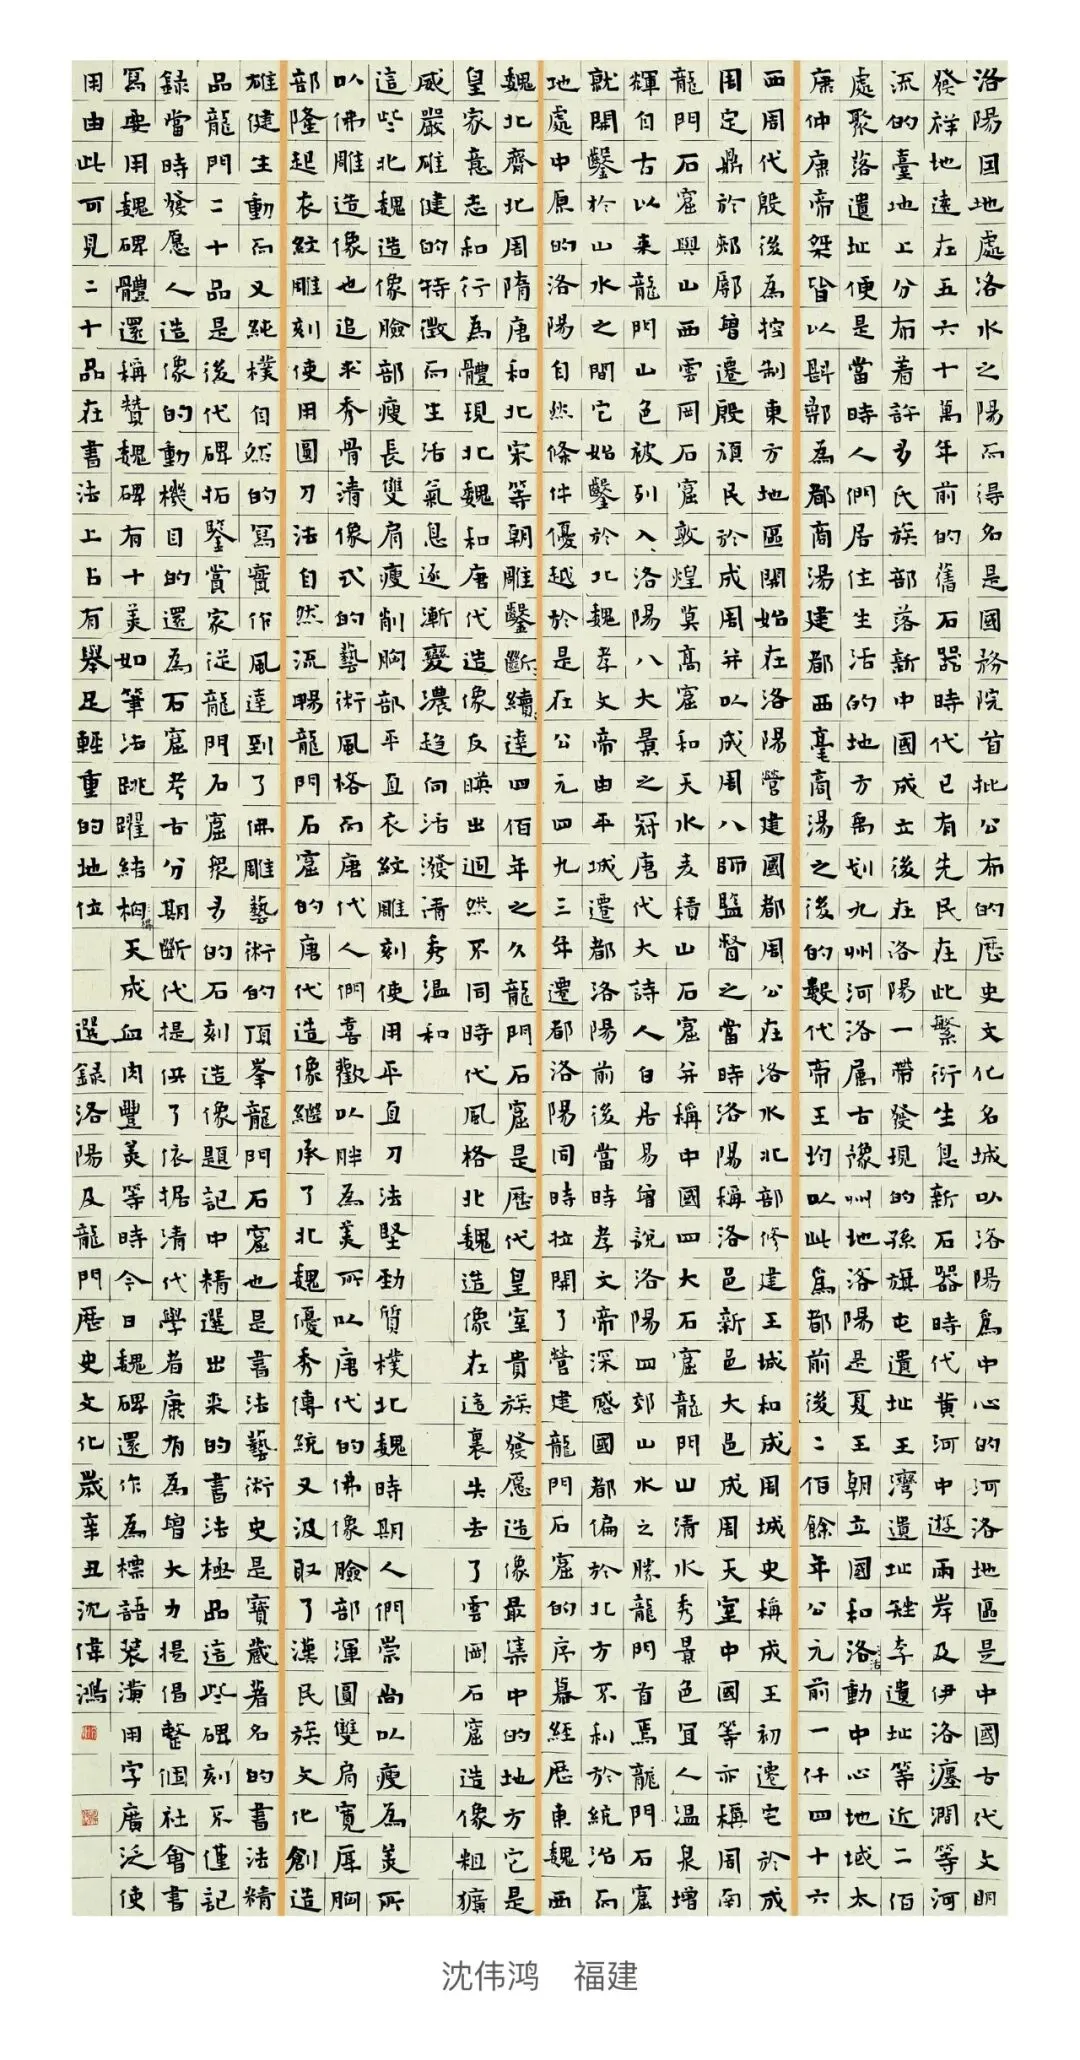 洛陽因地處洛水之陽而得名是國務院首批公布的歷史文化名城以洛陽為中心的河洛地區是中國古代文明
發祥地遠在五六十萬年前的舊石器時代已有先民在此繁衍生息新石器時代黃河中遊兩岸及伊洛瀍澗等河
流的臺地上分布着許多氏族部落新中國成立後在洛陽一帶發現的孫旗屯遺址王灣遺址矬李遺址等近二佰
處聚落遺址便是當時人們居住生活的地方禹划九州河洛属古豫州地洛陽是夏王朝立國和洛活動中心地域太
康仲康帝桀皆以斟鄩為都商湯建都西亳商湯之後的數代帝王均以此為都前後二佰餘年公元前一仟四十六
西周代殷後為控制東方地區開始在洛陽營建國都周公在洛水北部修建王城和成周城史稱成王初遷宅於成
周定鼎於郟鄏曾遷殷頑民於成周并以成周八師監督之當時洛陽稱洛邑新邑大邑成周天室中國等亦稱周南
龍門石窟與山西雲岡石窟敦煌莫高窟和天水麦積山石窟并稱中國四大石窟龍門山清水秀景色宜人温泉增
輝自古以来龍門山色被列入洛陽八大景之冠唐代大詩人白居易曾說洛陽四郊山水之勝龍門首焉龍門石窟
就開鑿於山水之間它始鑿於北魏孝文帝由平城遷都洛陽前後當時孝文帝深感國都偏於北方不利於統治而
地處中原的洛陽自然條件優越於是在公元四九三年遷都洛陽同時拉開了營建龍門石窟的序幕經歷東魏西
魏北齊北周隋唐和北宋等朝雕鑿斷續達四佰年之久龍門石窟是歷代皇室貴族發愿造像最集中的地方它是
皇家意志和行為體現北魏和唐代造像反映出迥然不同時代風格北魏造像在這裏失去了雲岡石窟造像粗獷
威嚴雄健的特徵而生活氣息逐漸變濃趋向活潑清秀温和
這些北魏造像臉部瘦長雙肩瘦削胸部平直衣紋雕刻使用平直刀法堅勁質樸北魏時期人們崇尚以瘦為美所
以佛雕造像也追求秀骨清像式的藝術風格而唐代人們喜歡以胖為美所以唐代的佛像臉部渾圓雙肩寬厚胸
部隆起衣紋雕刻使用圓刀法自然流暢龍門石窟的唐代造像繼承了北魏優秀傳統又汲取了漢民族文化創造
雄健生動而又純樸自然的寫實作風達到了佛雕藝術的頂峯龍門石窟也是書法藝術史是寶藏著名的書法精
品龍門二十品是後代碑拓鑒賞家從龍門石窟衆多的石刻造像題記中精選出来的書法極品這些碑刻不僅記
録當時發愿人造像的動機目的還為石窟考古分期斷代提供了依据清代學者康有為曾大力提倡整個社會書
寫要用魏碑體還稱贊魏碑有十美如筆法跳躍結構天成血肉豐美等時今日魏碑還作為標語裝潢用字廣泛使
用由此可見二十品在書法上占有舉足輕重的地位 選録洛陽及龍門歷史文化歲辛丑沈偉鴻
沈伟鸿 福建